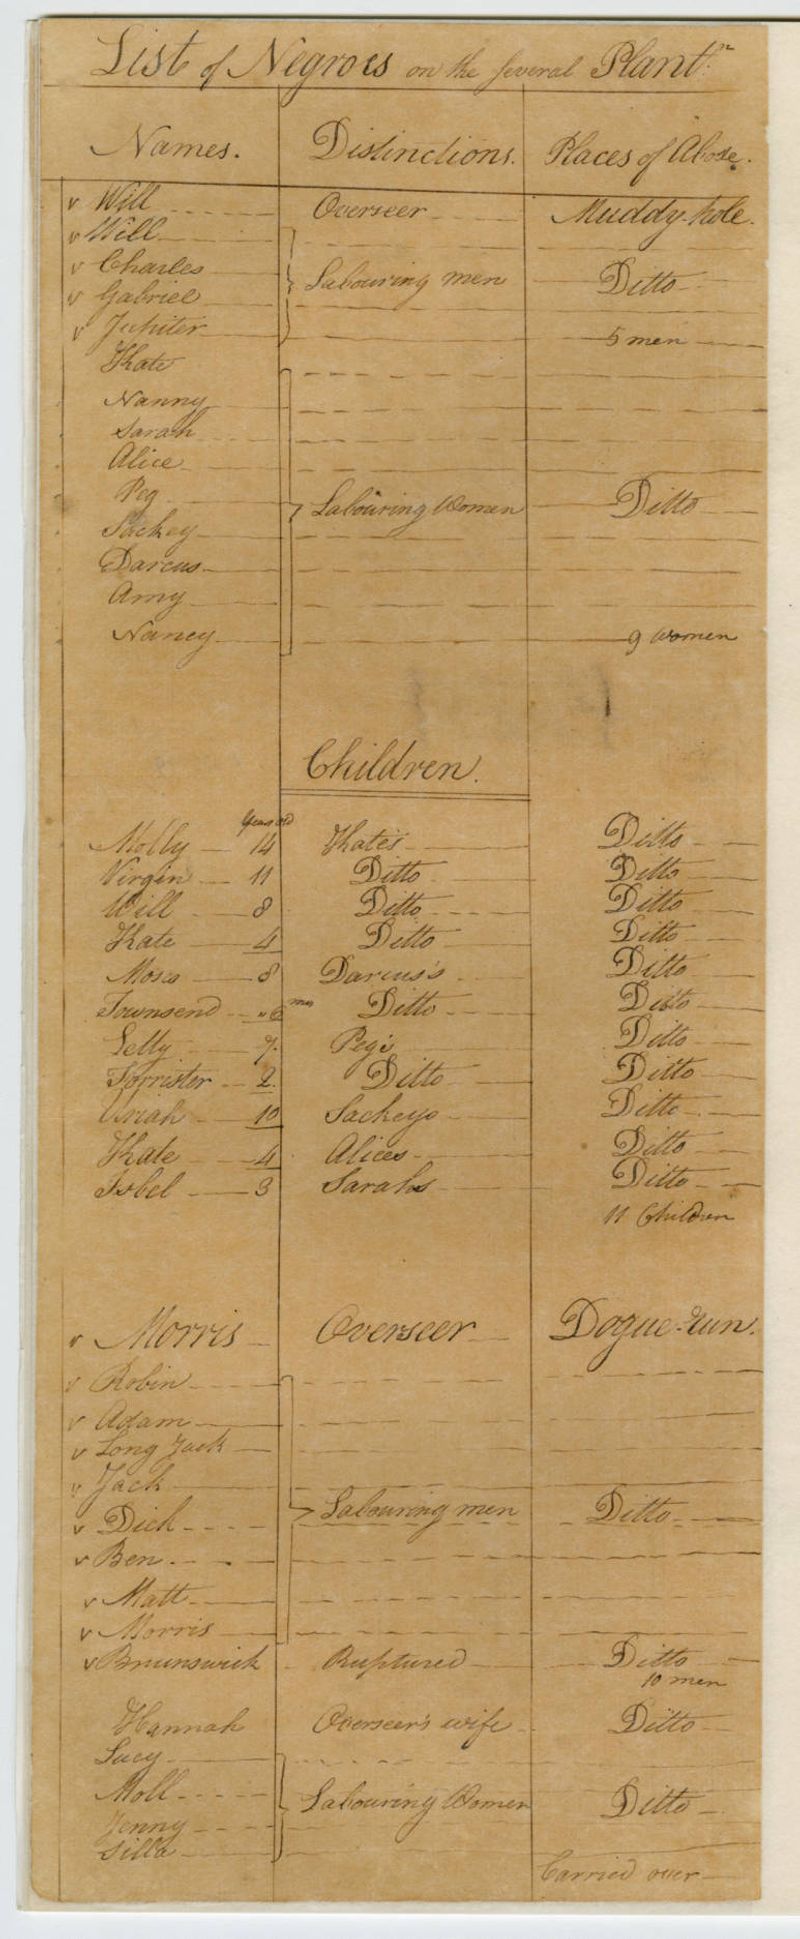 List of Negroes on the several Plantns
Names. Distinctions. Places of Abode.
v Will Overseer Muddy-hole.
v Will
v Charles Labouring men Ditto
v Gabriel
v Jupiter 5 men
Kate
Nanny
Sarah
Alice
Peg Labouring Women Ditto
Sackey
Darcus
Amy
Nancy 9 Women
Children.
Years old
Molly 14 Kate's Ditto
Virgin 11 Ditto Ditto
Will 8 Ditto Ditto
Kate 4 Ditto Ditto
Moses 8 Darcus's Ditto
Townsend 6 mos Ditto Ditto
Letty 7. Peg's Ditto
Forrister 2. Ditto Ditto
Uriah 10 Sackeys Ditto
Kate 4 Alices Ditto
Isbel 3 Sarahs Ditto
11 Children
v Morris Overseer Dogue-run.
v Robin
v Adam
v Long Jack
v Jack
v Dick Labouring men Ditto
v Ben
v Matt
v Morris
v Brunswick Ruptured Ditto
10 men
Hannah Overseer's wife Ditto
Lucy
Moll Labouring Women Ditto
Jenny
Silla
Carried over